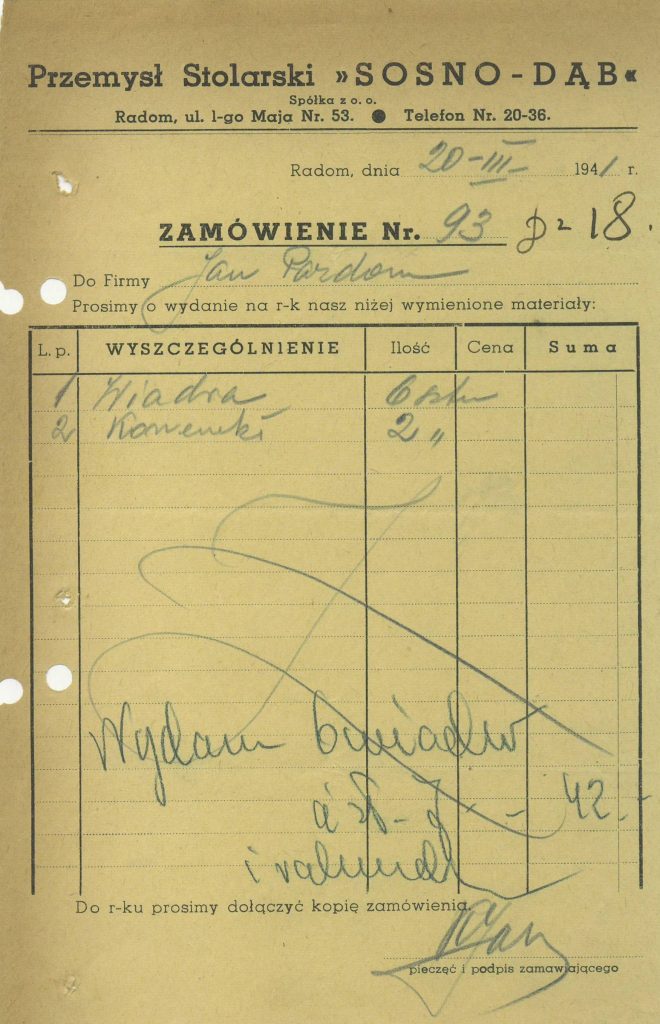 Przemysł Stolarski »SOSNO-DĄB«
Spółka z o. o.
Radom, ul. 1-go Maja Nr. 53. ● Telefon Nr. 20-36.
Radom, dnia 20-III- 1941 r.
ZAMÓWIENIE Nr. 93 = 18.
Do Firmy Jan
Prosimy o wydanie na r-k nasz niżej wymienione materiały:
L. p. WYSZCZEGÓLNIENIE Ilość Cena Suma
1 Wiadra 6
2 2 „
Wydałem 6 wiader
á zł - 7 - - 42.-
i
Do r-ku prosimy dołączyć kopię zamówienia.
pieczęć i podpis zamawiającego